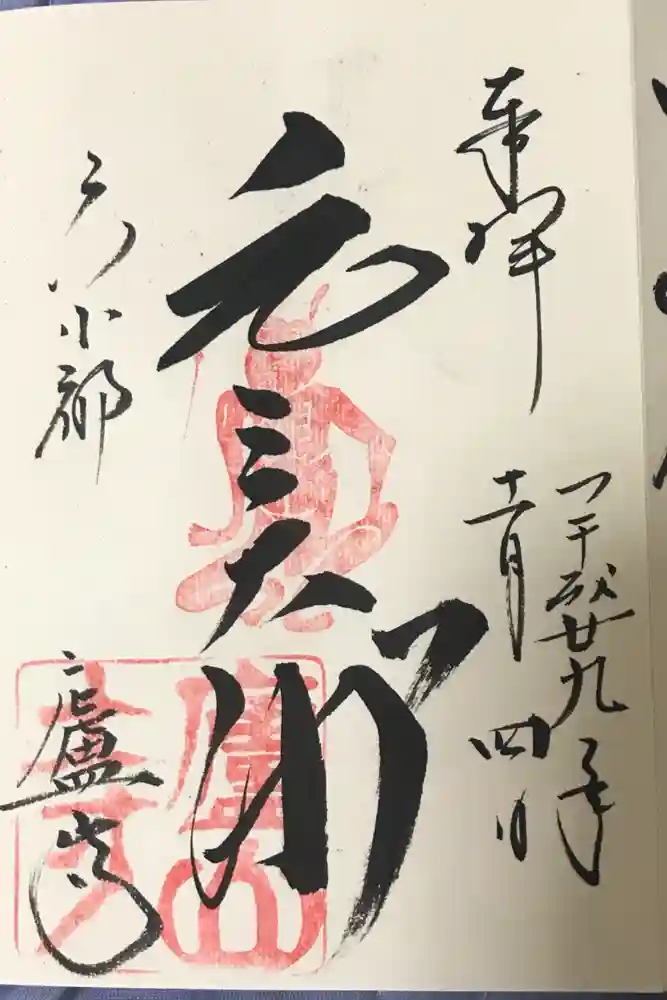 奉拝
平成廿九年
十一月四日
元三大師
京都
廬山寺
廬山